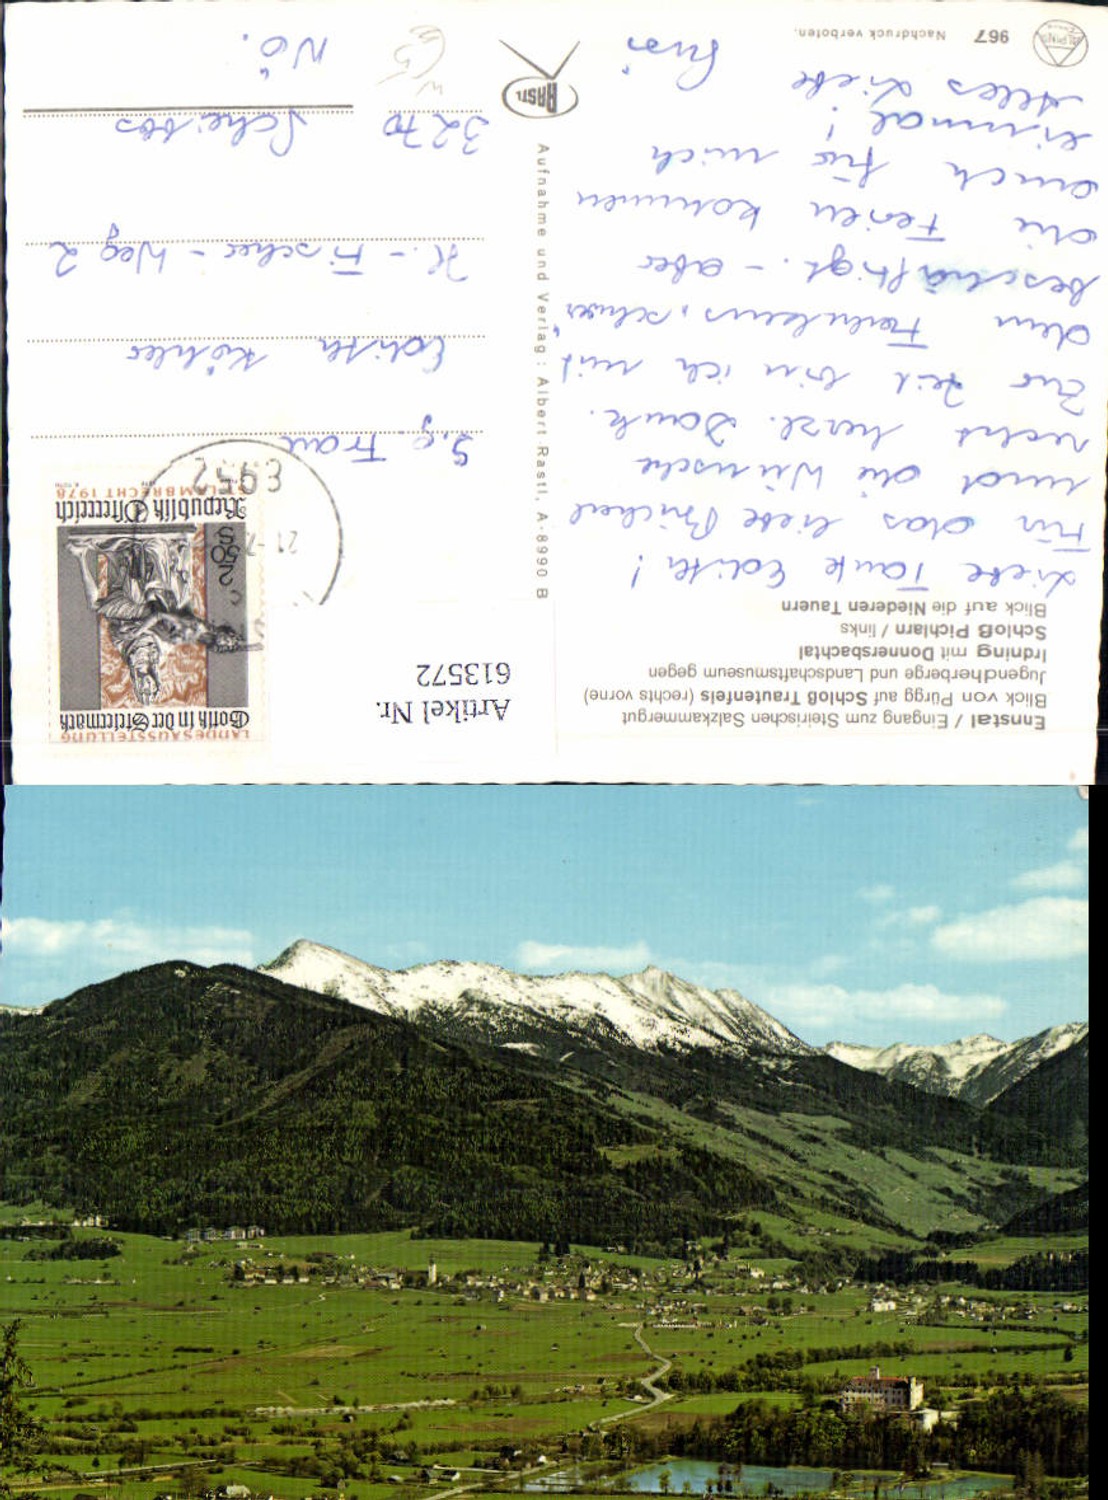 Ennstal / Eingang zum Steirischen Salzkammergut
Blick von Pürgg auf Schloß Trautenfels (rechts vorne)
Jugendherberge und Landschaftsmuseum gegen
Irdning mit Donnersbachtal
Schloß Pichlarn / links
Blick auf die Niederen Tauern
Liebe Tante Edith!
Für das liebe Bücherl
und die Wünsche
recht herzl. Dank.
Zur Zeit bin ich mit
dem Ferienkurs
beschäftigt. - aber
die Ferien kommen
auch für mich
einmal!
Alles Liebe
Susi
967 Nachdruck verboten.
Aufnahme und Verlag: Albert Rastl, A-8990 B
RASTL
Artikel Nr.
613572
LANDESAUSSTELLUNG
Gotik in der Steiermark
2
50
S
Republik Österreich
ST. LAMBRECHT 1978
21.-7.
S.g. Frau
Edith Köhler
H.-Fischer-Weg 2
3270 Scheibbs
NÖ.